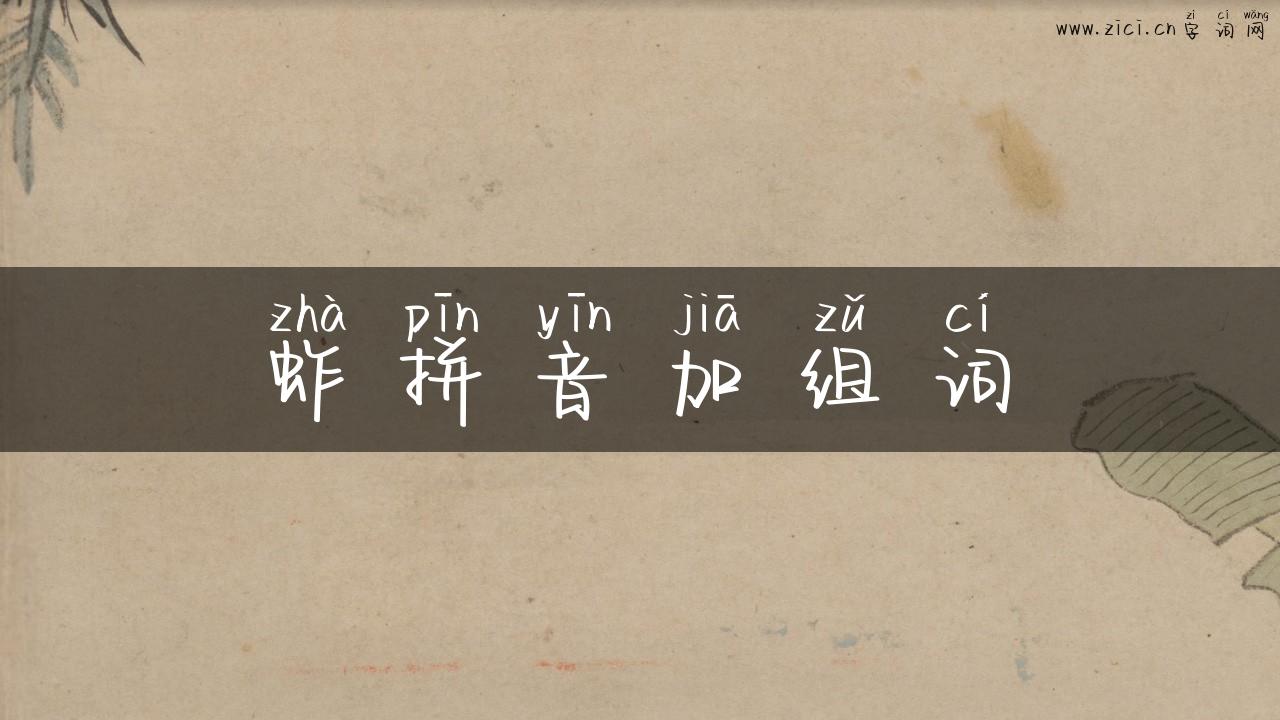 zì cí wǎng
www.zici.cn 字词网
zhà pīn yīn jiā zǔ cí
蚱拼音加组词